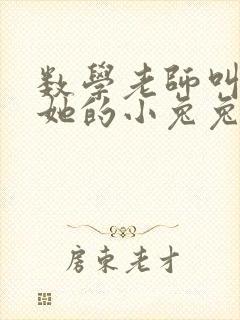 数學老師叫
她的小兔兔
房東老才